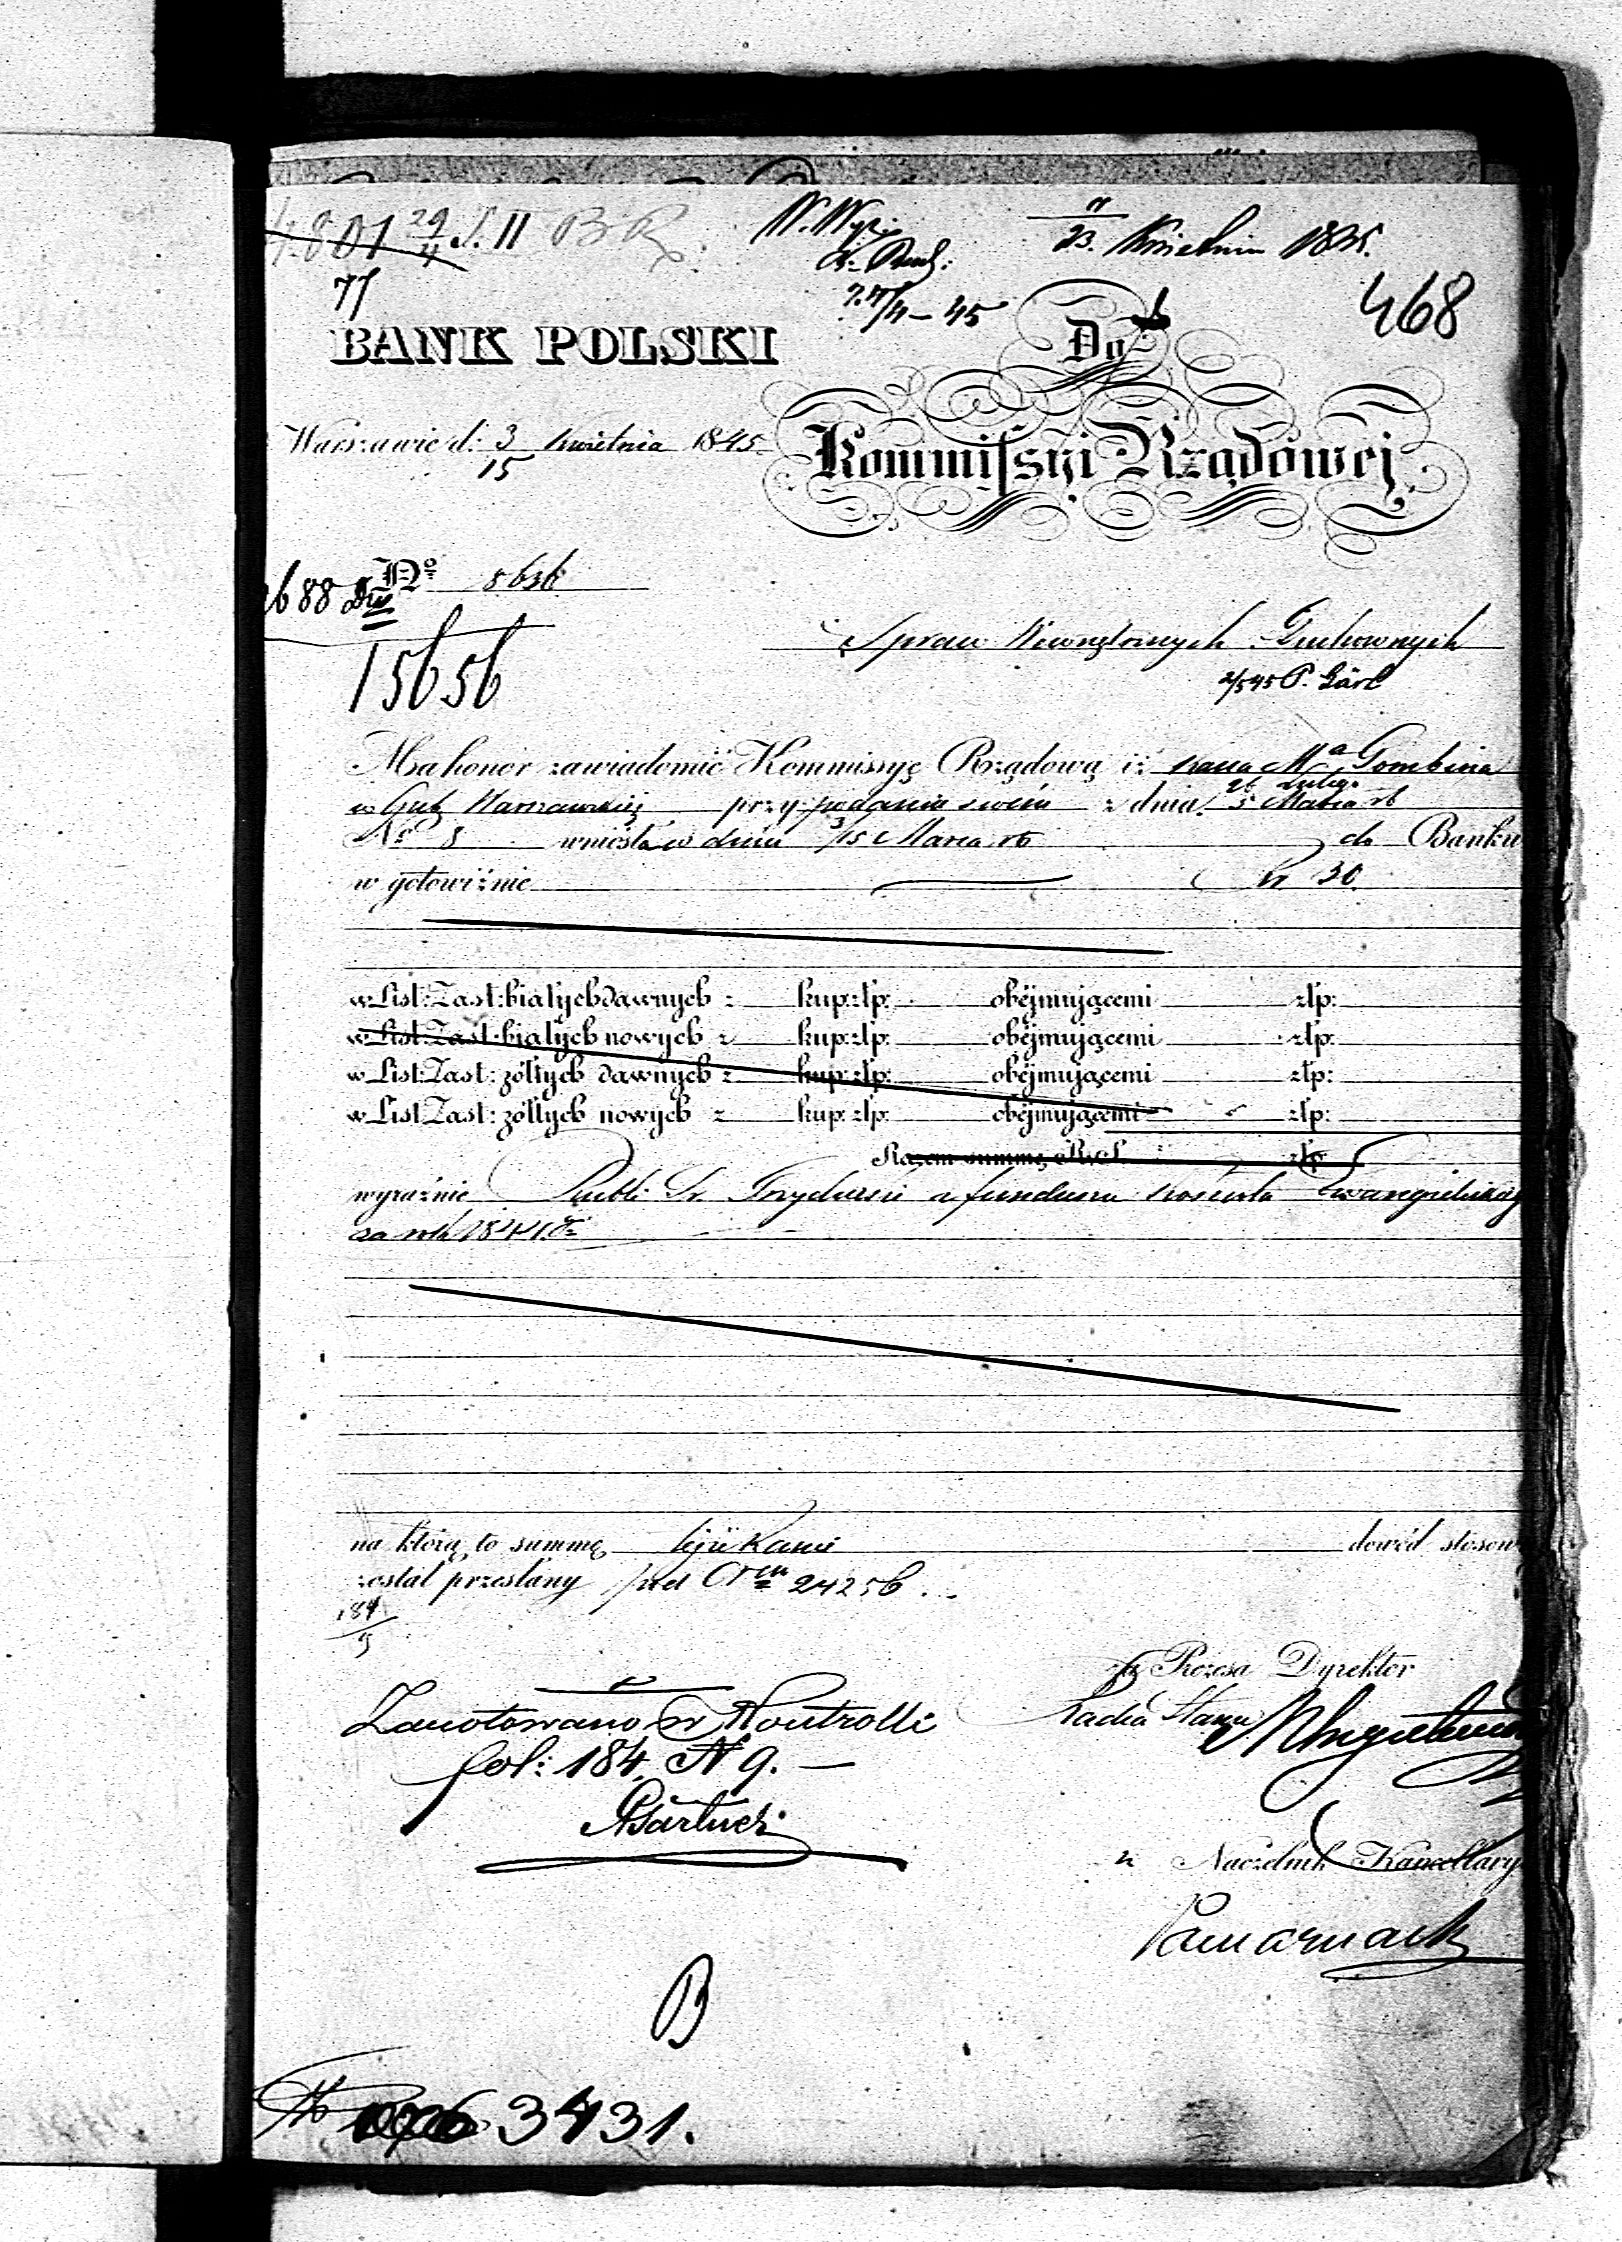 801 29/4 S. II B R
77
23. Kwietnia 1845.
468
BANK POLSKI
Do
Kommissyi Rządowej
Warszawie d. 3/15 Kwietnia 1845
Nº 5656
2688
15656
Spraw Wewnętrznych Duchownych
Ma honor zawiadomić Kommissyę Rządową iż Kassa Mª Gombina
w Gub Warszawskiej przy podaniu swém z dnia 26 Lutego / 5 Marca rb
Nº 8 wniosła w dniu 3/15 Marca rb do Banku
w gotowiźnie Rr 30
w List: Zast: białych dawnych z kup: złp: obéjmującemi złp:
w List: Zast: białych nowych z kup: złp: obéjmującemi złp:
w List: Zast: żółtych dawnych z kup: złp: obéjmującemi złp:
w List: Zast: żółtych nowych z kup: złp: obéjmującemi złp:
Razem summę złp
wyraźnie Rubli Sr. Trzydzieści z funduszu Kościoła Ewangielickiego
za rok 1844
na którą to summę tejże Kassie dowód stosow
został przesłany pod Nrm 24256.
184/9
Zanotowano w Kontrolli
fol: 184. N 9.
za Prezesa Dyrektor
Radca Stanu
z Naczelnik Kancellaryi
B
3431.